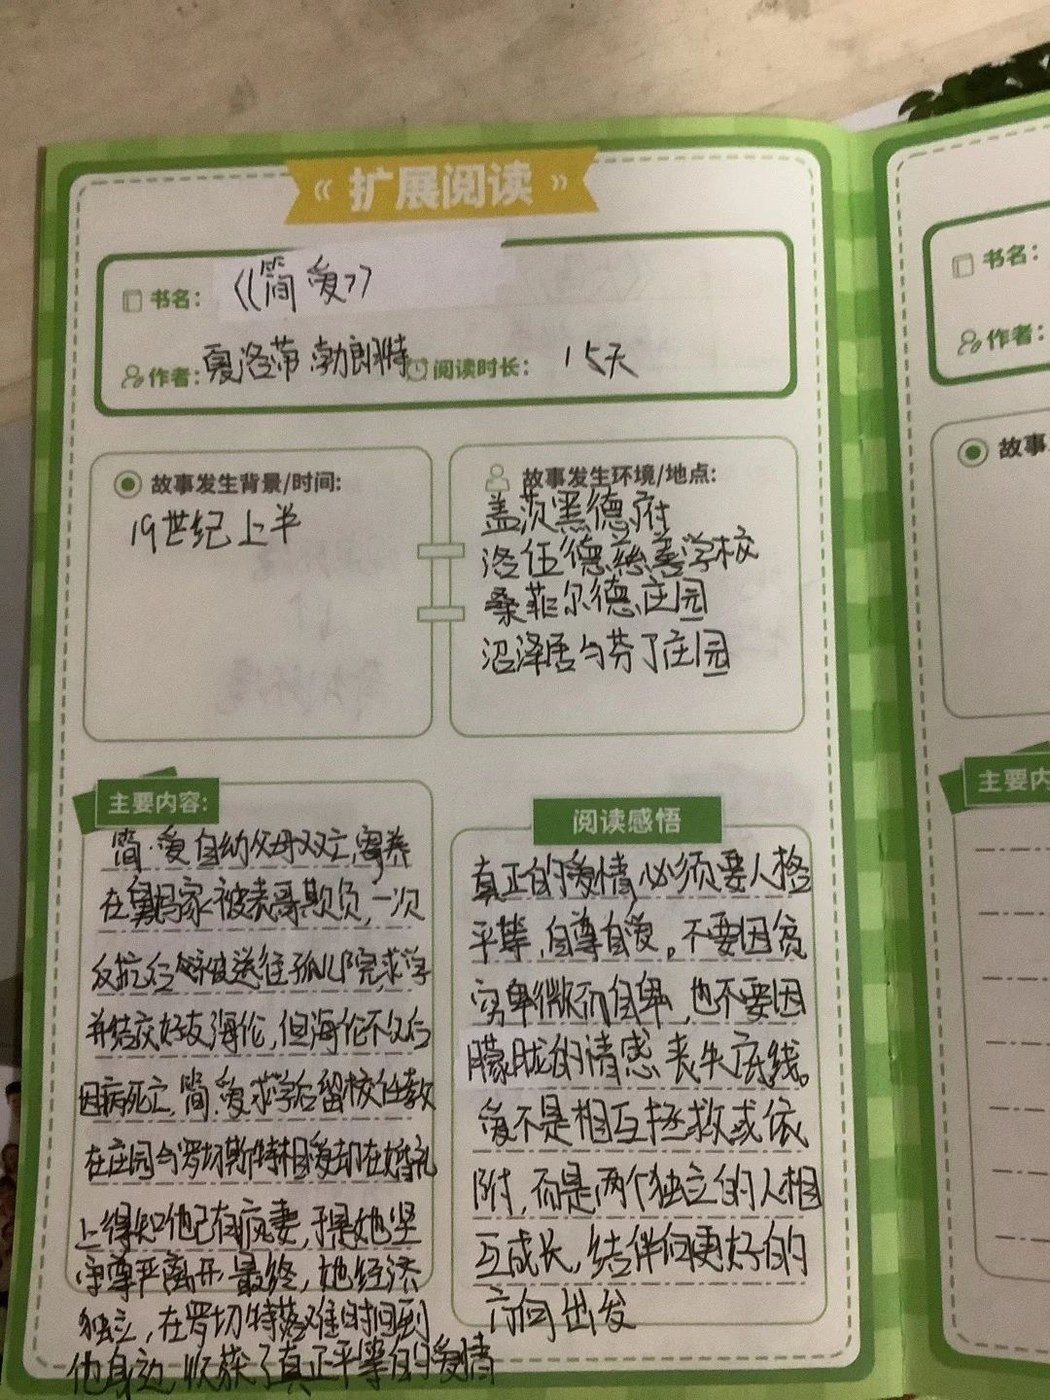 《 扩展阅读 》
书名：《简爱》
作者：夏洛蒂 勃朗特 阅读时长： 15天
故事发生背景/时间:
19世纪上半
故事发生环境/地点:
盖茨黑德府
洛伍德慈善学校
桑菲尔德庄园
沼泽居与芬丁庄园
主要内容:
简·爱自幼父母双亡,寄养
在舅妈家被表哥欺负,一次
反抗后被送往孤儿院求学
并结交好友海伦,但海伦不久后
因病死亡,简·爱求学后留校任教
在庄园与罗切斯特相爱却在婚礼
上得知他已有疯妻,于是她坚
守尊严离开.最终,她经济
独立,在罗切特落难时回到
他身边,收获了真正平等的爱情
阅读感悟
真正的爱情,必须要人格
平等,自尊自爱。不要因贫
穷卑微而自卑,也不要因
朦胧的情感丧失底线。
爱不是相互拯救或依
附,而是两个独立的人相
互成长,结伴向更好的
方向出发
书名：
作者：
故事
主要内